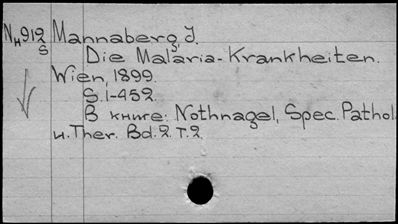 Nн912 Mannaberg, J.
S
Die Malaria-Krankheiten.
Wien, 1899.
S. 1-452.
В книге: Nothnagel, Spec. Pathol.
u. Ther. Bd. 2. T. 2.